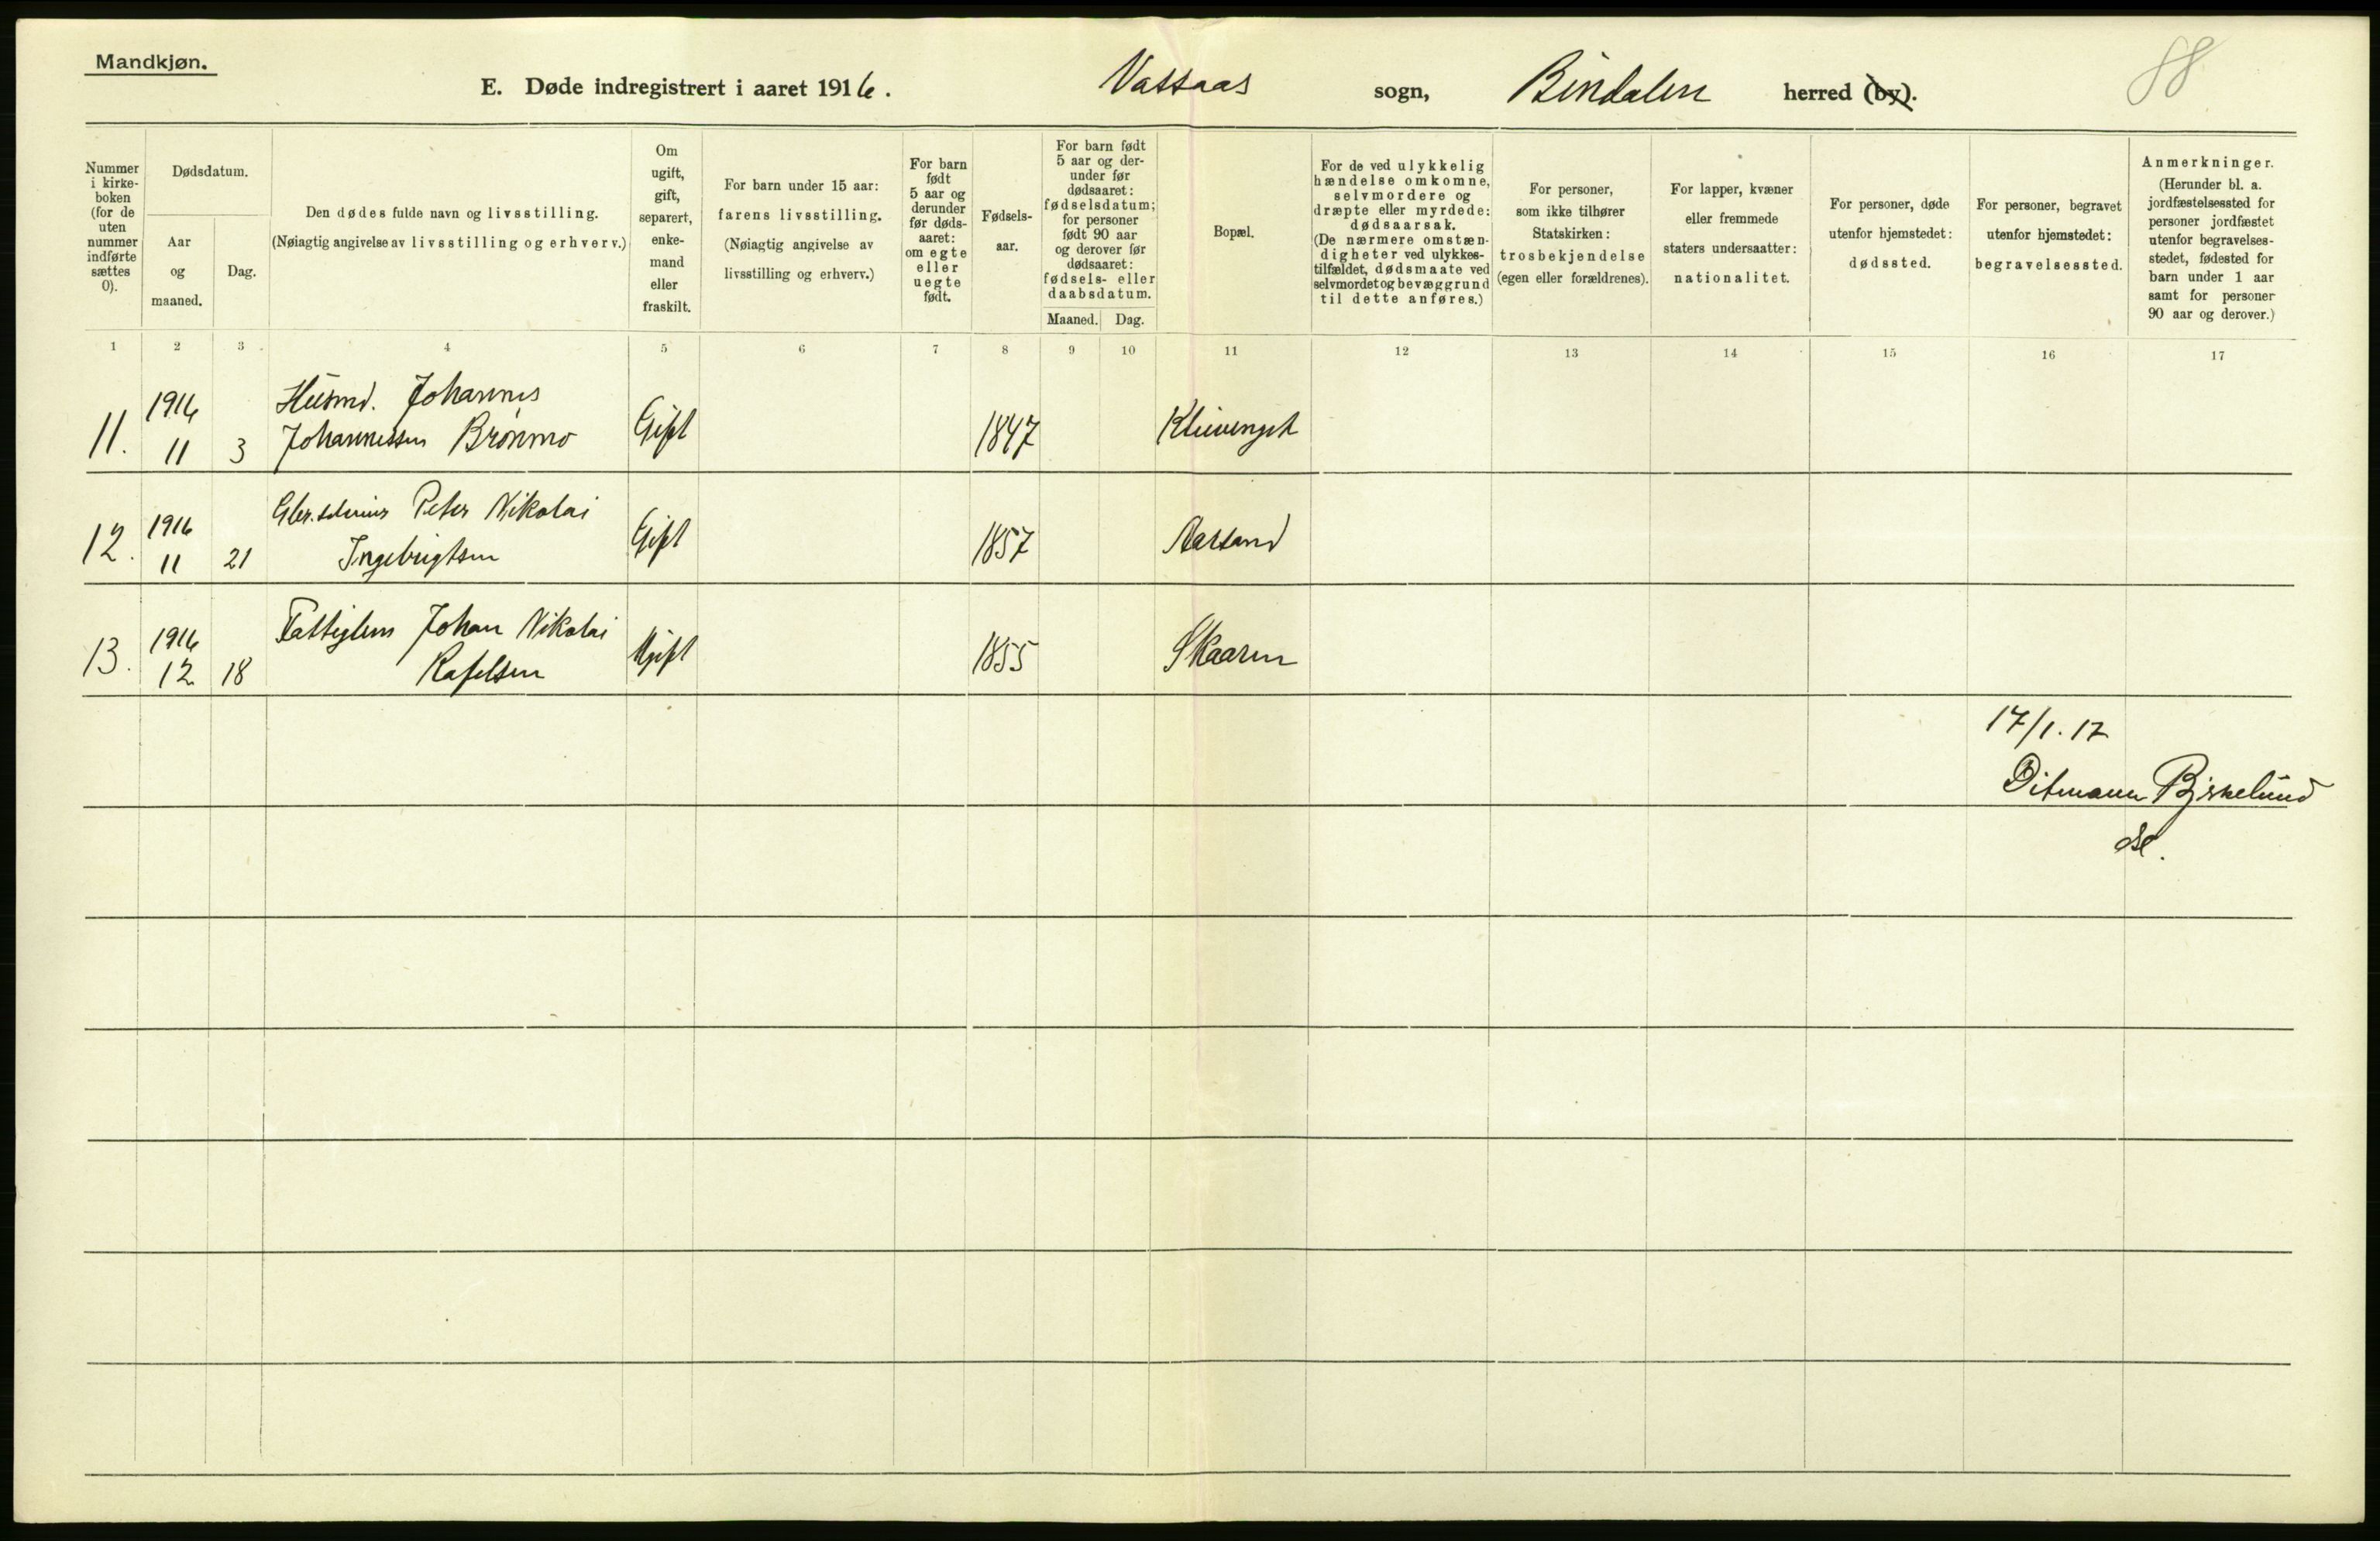 Mandkjøn.
E. Døde indregistrert i aaret 1916. Vassaas sogn, Bindalen herred (by).
88
Nummer
i kirke-
boken
(for de
uten
nummer
indførte
sættes
0).
Dødsdatum.
Aar
og
maaned.
Dag.
Den dødes fulde navn og livsstilling.
(Nøiagtig angivelse av livsstilling og erhverv.)
Om
ugift,
gift,
separert,
enke-
mand
eller
fraskilt.
For barn under 15 aar:
farens livsstilling.
(Nøiagtig angivelse av
livsstilling og erhverv.)
For barn
født
5 aar og
derunder
før døds-
aaret:
om egte
eller
uegte
født.
Fødsels-
aar.
For barn født
5 aar og der-
under før
dødsaaret:
fødselsdatum;
for personer
født 90 aar
og derover før
dødsaaret:
fødsels- eller
daabsdatum.
Maaned. Dag.
Bopæl.
For de ved ulykkelig
hændelse omkomne,
selvmordere og
dræpte eller myrdede:
dødsaarsak.
(De nærmere omstæn-
digheter ved ulykkes-
tilfældet, dødsmaate ved
selvmordet og bevæggrund
til dette anføres.)
For personer,
som ikke tilhører
Statskirken:
trosbekjendelse
(egen eller forældrenes).
For lapper, kvæner
eller fremmede
staters undersaatter:
nationalitet.
For personer, døde
utenfor hjemstedet:
dødssted.
For personer, begravet
utenfor hjemstedet:
begravelsessted.
Anmerkninger.
(Herunder bl. a.
jordfæstelsessted for
personer jordfæstet
utenfor begravelses-
stedet, fødested for
barn under 1 aar
samt for personer
90 aar og derover.)
1 2 3 4 5 6 7 8 9 10 11 12 13 14 15 16 17
1916 Husmd. Johannes
11. 11 3 Johannessen Brønmo Gift 1847
1916 Peter Nikolai
12. 11 21 Ingebrigtsen Gift 1857 Aarsand
1916 Fattiglem Johan Nikolai
13. 12 18 Rafelsen Ugift 1855 Skaaren
17/1.17
Ditmann Birkelund